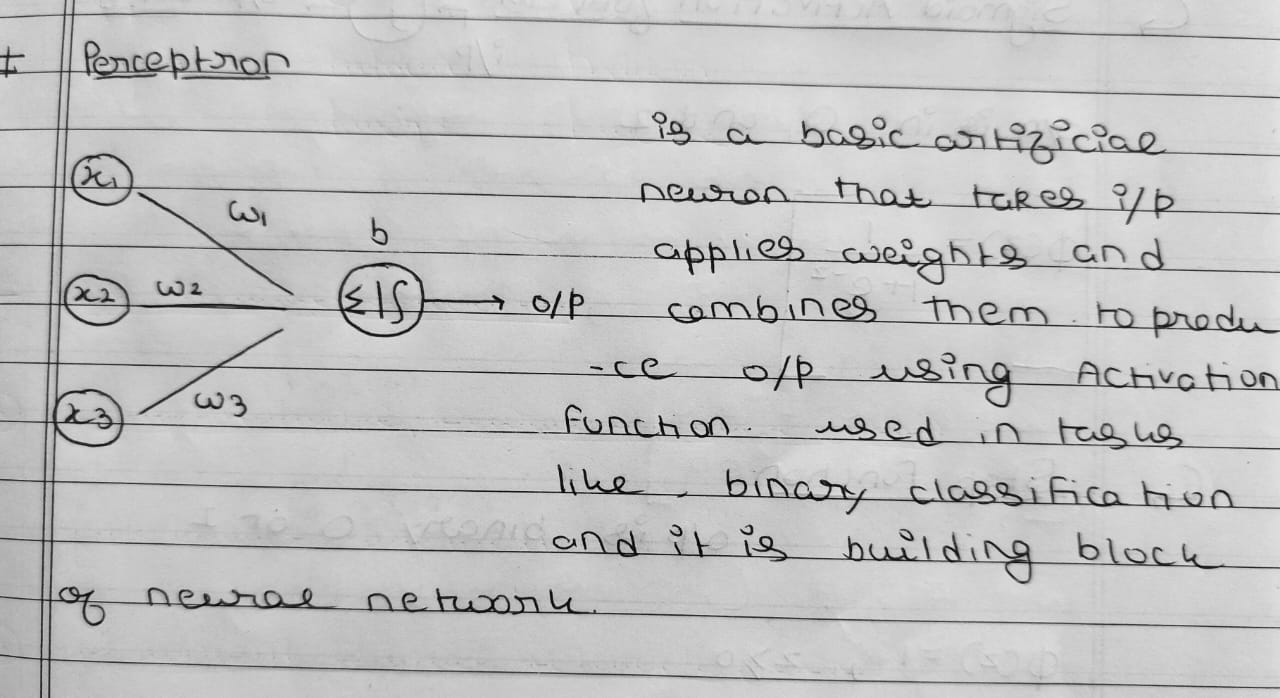 Perceptron
is a basic artificial
neuron that takes i/p
applies weights and
combines them to produ
-ce o/p using Activation
function. used in tasks
like, binary classification
and it is building block
of neural network.
x1
w1
b
x2
w2
Σ|∫
o/p
x3
w3